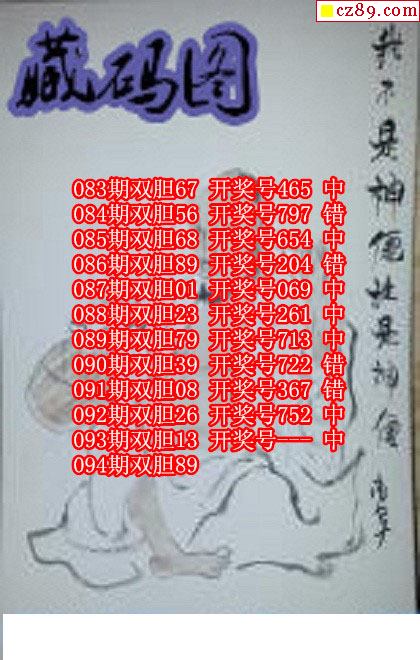 cz89.com
藏码图
083期双胆67 开奖号465 中
084期双胆56 开奖号797 错
085期双胆68 开奖号654 中
086期双胆89 开奖号204 错
087期双胆01 开奖号069 中
088期双胆23 开奖号261 中
089期双胆79 开奖号713 中
090期双胆39 开奖号722 错
091期双胆08 开奖号367 错
092期双胆26 开奖号752 中
093期双胆13 开奖号--- 中
094期双胆89
我不是神仙社是神仙